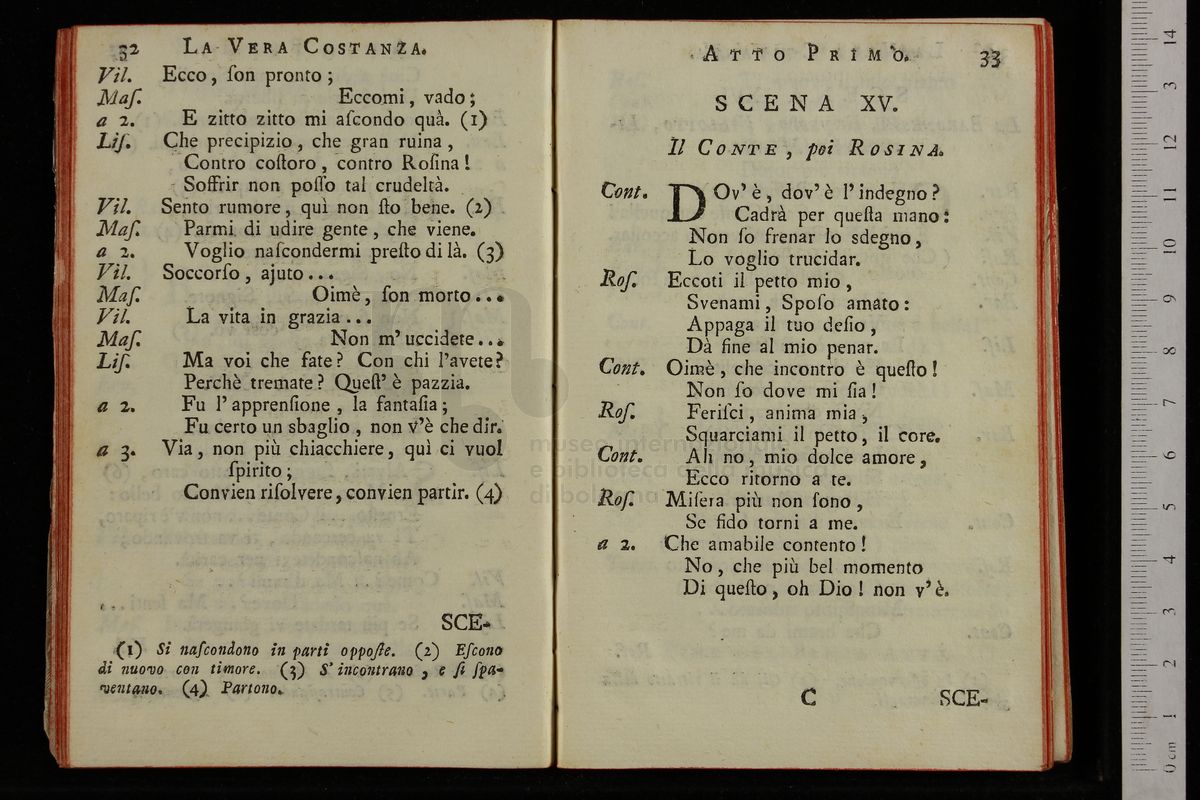 32 LA VERA COSTANZA.
Vil. Ecco, ſon pronto;
Maſ. Eccomi, vado;
a 2. E zitto zitto mi aſcondo quà. (1)
Liſ. Che precipizio, che gran ruina,
Contro coſtoro, contro Roſina!
Soffrir non poſſo tal crudeltà.
Vil. Sento rumore, quì non ſto bene. (2)
Maſ. Parmi di udire gente, che viene.
a 2. Voglio naſcondermi preſto di là. (3)
Vil. Soccorſo, ajuto...
Maſ. Oimè, ſon morto...
Vil. La vita in grazia...
Maſ. Non m'uccidete...
Liſ. Ma voi che fate? Con chi l'avete?
Perchè tremate? Queſt' è pazzia.
a 2. Fu l'apprenſione, la fantaſia;
Fu certo un sbaglio, non v'è che dir.
a 3. Via, non più chiacchiere, quì ci vuol
ſpirito;
Convien riſolvere, convien partir. (4)
SCE-
(1) Si naſcondono in parti oppoſte. (2) Eſcono
di nuovo con timore. (3) S'incontrano, e ſi ſpa-
ventano. (4) Partono.
ATTO PRIMO. 33
SCENA XV.
Il CONTE, poi ROSINA.
Cont. DOv' è, dov' è l'indegno?
Cadrà per queſta mano:
Non ſo frenar lo sdegno,
Lo voglio trucidar.
Roſ. Eccoti il petto mio,
Svenami, Spoſo amato:
Appaga il tuo deſio,
Dà fine al mio penar.
Cont. Oimè, che incontro è queſto!
Non ſo dove mi ſia!
Roſ. Feriſci, anima mia,
Squarciami il petto, il core.
Cont. Ah no, mio dolce amore,
Ecco ritorno a te.
Roſ. Miſera più non ſono,
Se fido torni a me.
a 2. Che amabile contento!
No, che più bel momento
Di queſto, oh Dio! non v'è.
C SCE-
museo internazionale
e biblioteca della musica
di bologna
0 cm 1 2 3 4 5 6 7 8 9 10 11 12 13 14